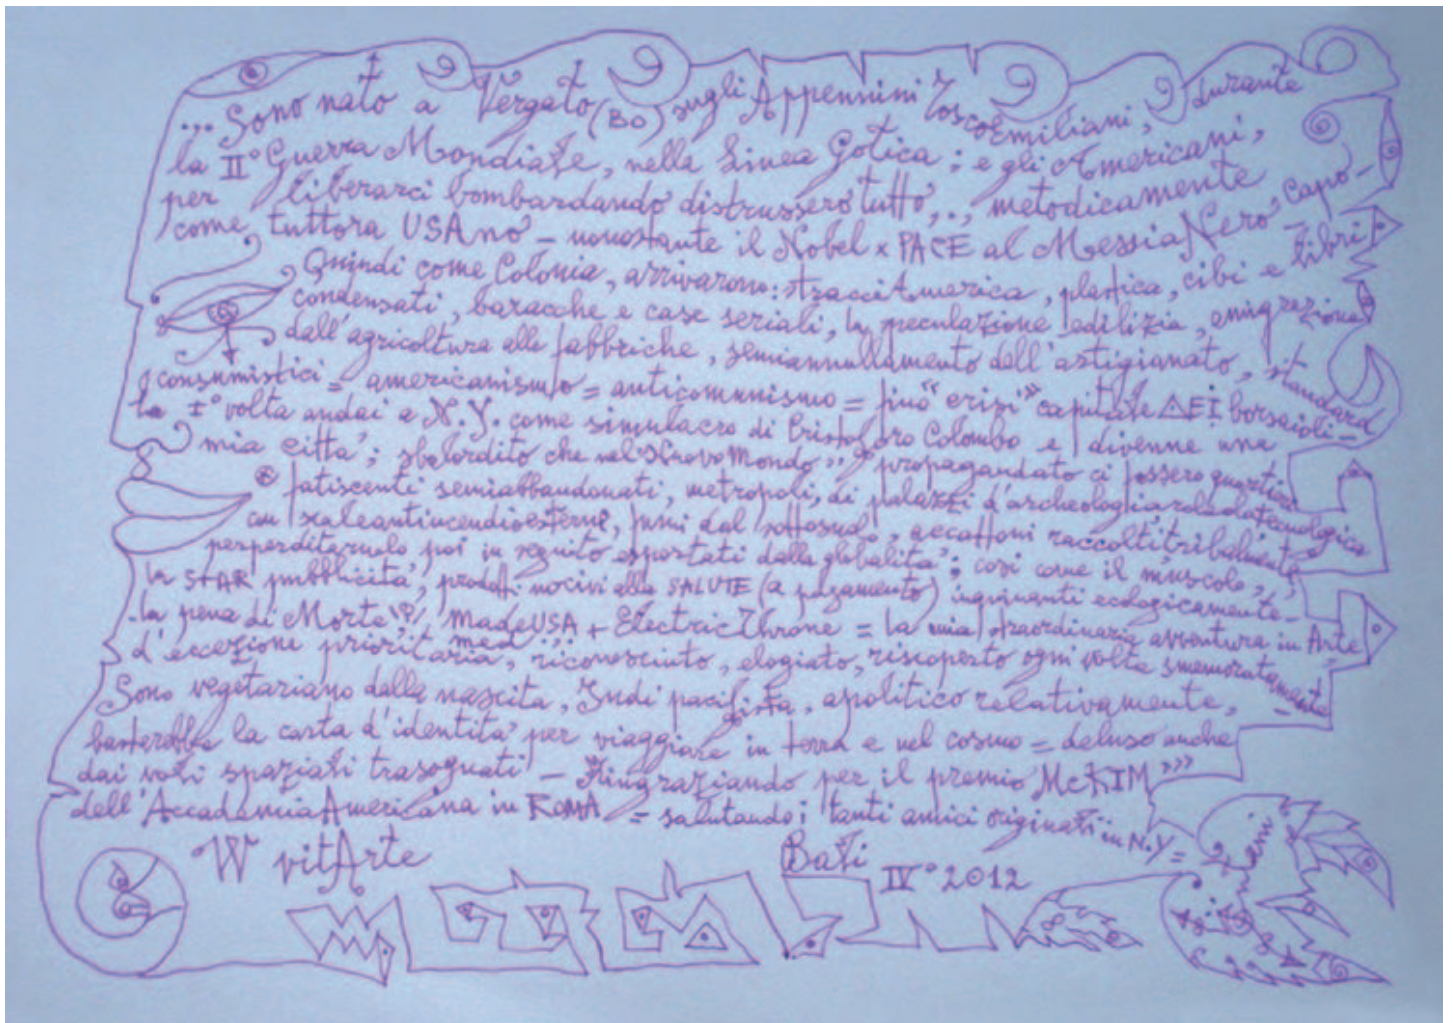 ... Sono nato a Vergato (BO) sugli Appennini ToscoEmiliani, durante
la II° Guerra Mondiale, nella Linea Gotica; e gli Americani,
per liberarci bombardando distrussero tutto,., metodicamente
come tuttora USAno - nonostante il Nobel x PACE al MessiaNero - Capo-
Quindi come Colonia, arrivarono: stracciAmerica, plastica, cibi e libri
condensati, baracche e case seriali, la speculazione edilizia, emigrazione
dall'agricoltura alle fabbriche, semiannullamento dell'artigianato, standard
consumistici = americanismo = anticomunismo = fino "crisi" capitale DEI borsaioli-
la I° volta andai a N.Y. come simulacro di Cristoforo Colombo e divenne una
mia città; sbalordito che nel Nuovo Mondo propagandato ci fossero quartieri
fatiscenti semiabbandonati, metropoli, di palazzi d'archeologia
con scaleantincendioesterne, fumi dal sottosuolo, accattoni raccolti tribalmente
poi in seguito esportati dalla globalità; così come il muscolo,
la STAR pubblicità, prodotti nocivi alla SALUTE (a pagamento) inquinanti ecologicamente-
-la pena di Morte madeUSA + ElectricThrone = la mia straordinaria avventura in Arte
d'eccezione prioritaria, riconosciuto, elogiato, riscoperto ogni volta smemoratamente
Sono vegetariano dalla nascita, Indi pacifista, apolitico relativamente,
basterebbe la carta d'identità per viaggiare in terra e nel cosmo = deluso anche
dai voli spaziali trasognati - Ringraziando per il premio McKIM
dell'AccademiaAmericana in ROMA = salutando i tanti amici originati in N.Y=
W vitArte
Bati
IV° 2012